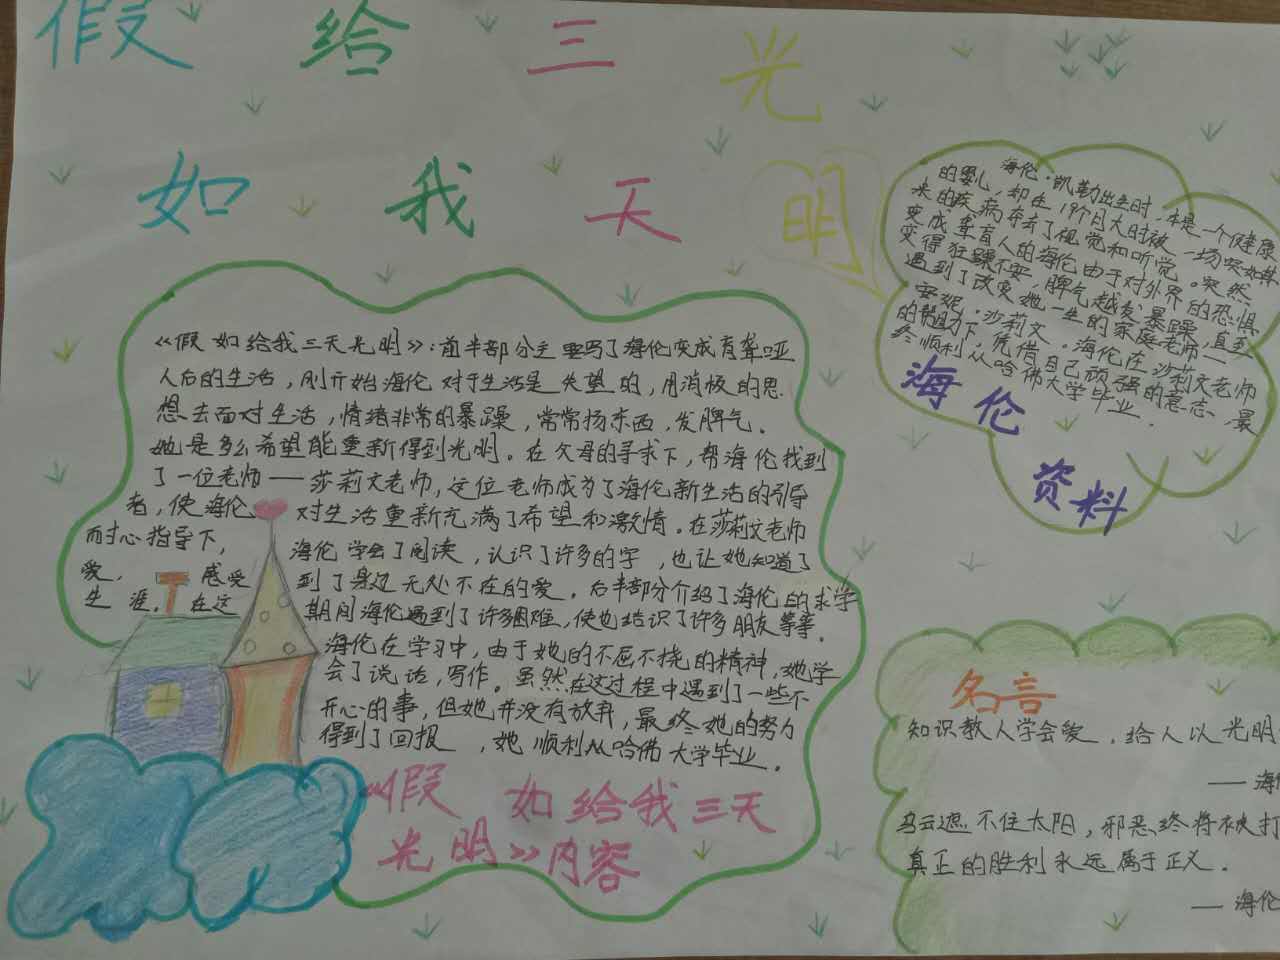 假 给 三 光
如 我 天 明
海伦·凯勒出生时,本是一个健康
的婴儿,却在19个月大时被一场突如其
来的疾病夺去了视觉和听觉。突然
变成聋盲人的海伦由于对外界的恐惧
变得狂躁不安,脾气越发暴躁,直至
遇到了改变她一生的家庭老师——
安妮·莎莉文。海伦在莎莉文老师
的帮助下,凭借自己顽强的意志,最
终顺利从哈佛大学毕业.
海伦
资料
《假如给我三天光明》:前半部分主要写了海伦变成盲聋哑
人后的生活,刚开始海伦对于生活是失望的,用消极的思
想去面对生活,情绪非常的暴躁,常常扔东西,发脾气。
她是多么希望能重新得到光明。在父母的寻求下,帮海伦找到
了一位老师——莎莉文老师,这位老师成为了海伦新生活的引导
者,使海伦 对生活重新充满了希望和激情。在莎莉文老师
耐心指导下, 海伦学会了阅读,认识了许多的字,也让她知道了
爱, 感受 到了身边无处不在的爱。后半部分介绍了海伦的求学
生涯. 在这 期间海伦遇到了许多困难,使也结识了许多朋友等等.
海伦在学习中,由于她的不屈不挠的精神,她学
会了说话,写作。虽然在这过程中遇到了一些不
开心的事,但她并没有放弃,最终她的努力
得到了回报,她顺利从哈佛大学毕业.
《假如给我三天
光明》内容
名言
知识教人学会爱.给人以光明
——海
乌云遮不住太阳,邪恶终将被打
真正的胜利永远属于正义.
——海伦